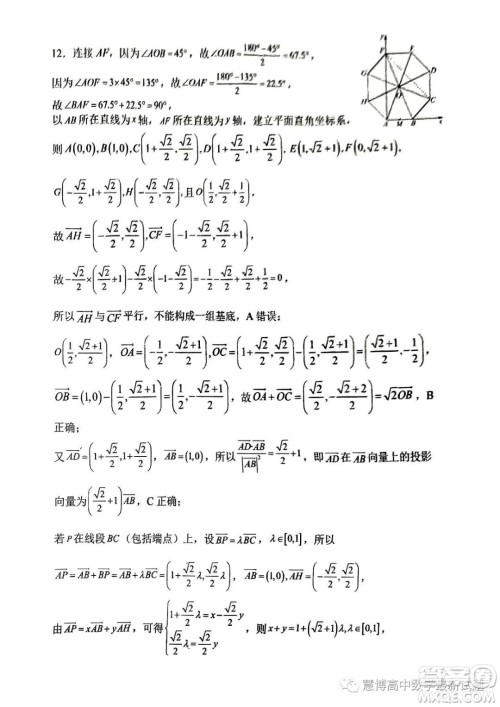 12. 连接 AF，因为∠AOB=45°，故∠OAB=(180°−45°)/2=67.5°，
因为∠AOF=3×45°=135°，故∠OAF=(180°−135°)/2=22.5°，
故∠BAF=67.5°+22.5°=90°，
以 AB 所在直线为 x 轴，AF 所在直线为 y 轴，建立平面直角坐标系，
则 A(0,0), B(1,0), C(1+√2/2, √2/2), D(1+√2/2, √2/2+1), E(1,√2+1), F(0,√2+1).
G(−√2/2, 1+√2/2), H(−√2/2, √2/2), 且 O(1/2, (√2+1)/2),
故 AH=(−√2/2, √2/2), CF=(−1−√2/2, √2/2+1),
故−√2/2×(√2/2+1)−√2/2×(−1−√2/2)=−1/2−√2/2+√2/2+1/2=0，
所以 AH 与 CF 平行，不能构成一组基底，A 错误；
O(1/2, (√2+1)/2), OA=(−1/2, −(√2+1)/2), OC=
OB=(1,0)−(1/2, (√2+1)/2)=(1/2, −(√2+1)/2), 故 OA+OC=(√2/2, −(√2+2)/2)=√2OB，B
正确；
又 AD=(1+√2/2, √2/2+1), AB=(1,0), 所以 AD·AB/|AB|²=√2/2+1，即 AD 在 AB 向量上的投影
向量为(√2/2+1)AB，C 正确；
若 P 在线段 BC（包括端点）上，设 BP=λBC，λ∈[0,1]，所以
AP=AB+BP=AB+λBC=(1+√2/2λ, √2/2λ), AB=(1,0), AH=(−√2/2, √2/2),
由 AP=xAB+yAH，可得{1+√2/2λ=x−√2/2y, √2/2λ=√2/2y，则 x+y=1+(√2+1)λ，λ∈[0,1]，
慧博高中数学最新试题